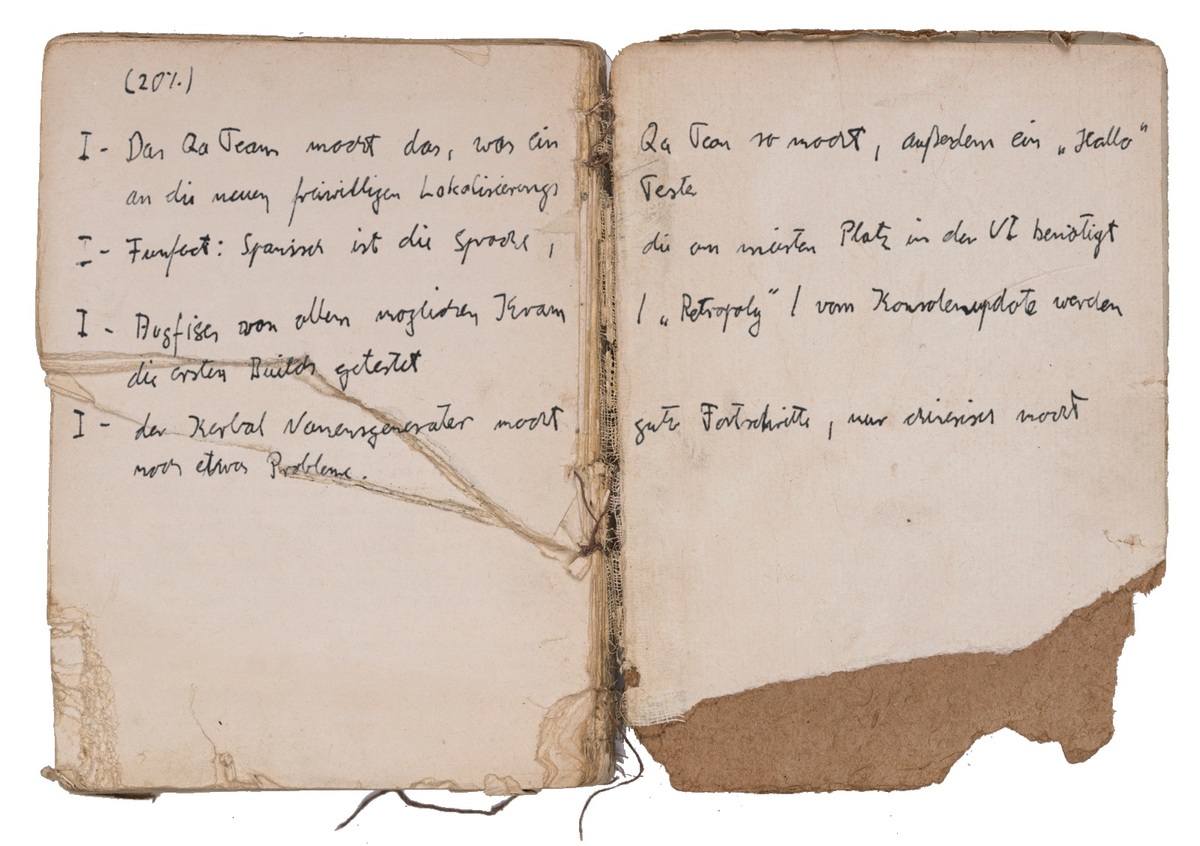 (20%)
I - Das Qa Team macht das, was ein Qa Team so macht, außerdem ein „Hallo“
an die neuen freiwilligen Lokalisierungs Tester
I - Funfact: Spanisch ist die Sprache, die am meisten Platz in der UI benötigt
I - Bugfixes von allem möglichen Kram / „Retropoly“ / vom Konsolenupdate werden
die ersten Builds getestet
I - der Kerbal Namensgenerator macht gute Fortschritte, nur chinesisch macht
noch etwas Probleme.